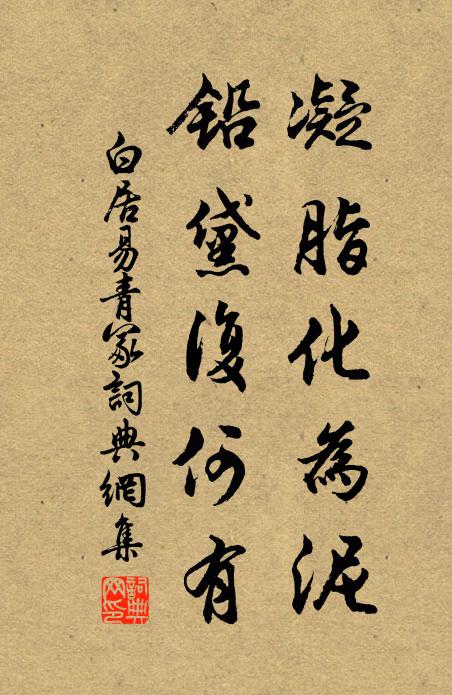 凝脂化為泥
鉛黛復何有
白居易青冢詞典網集
詞典網印